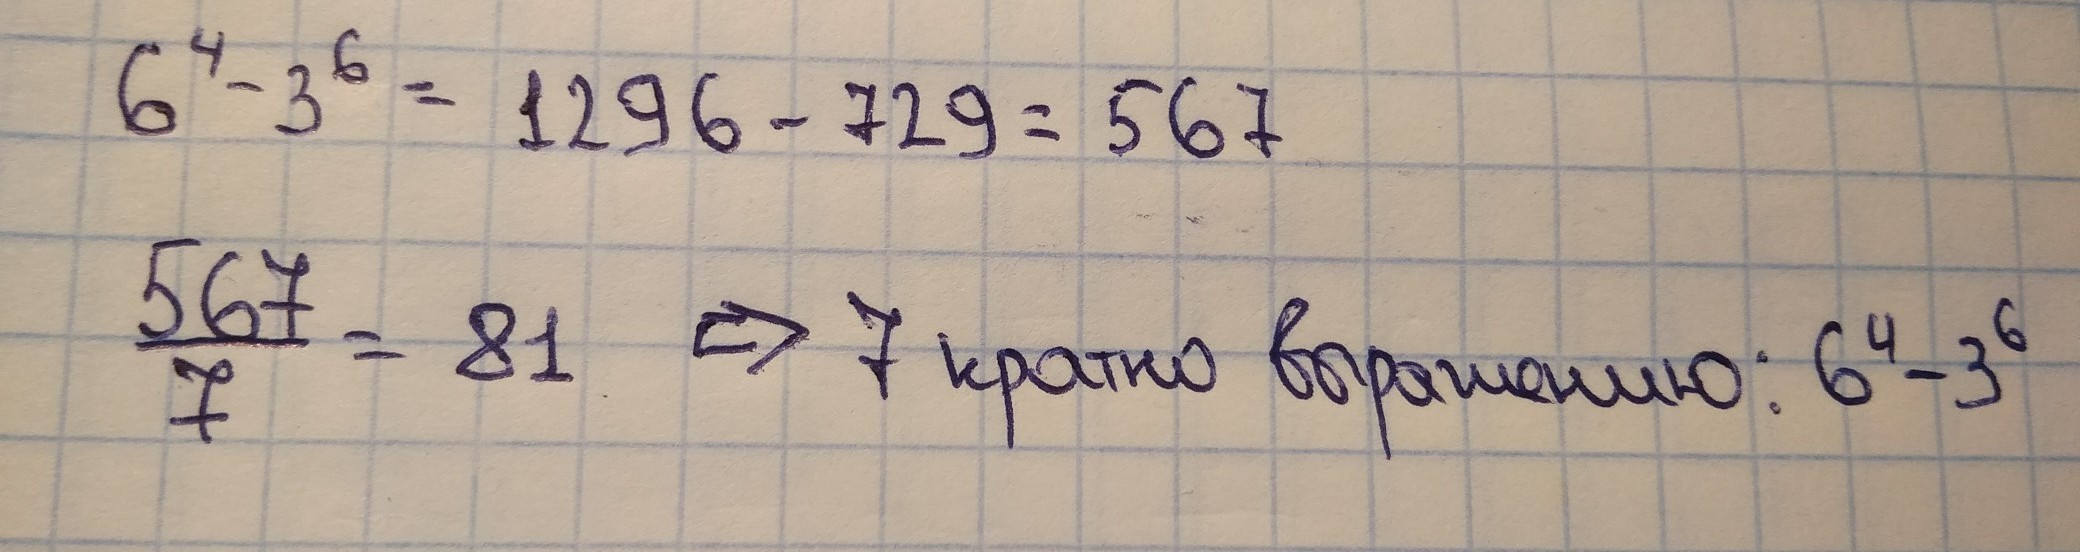 6⁴ - 3⁶ = 1296 - 729 = 567
567/7 = 81 => 7 кратно выражению: 6⁴ - 3⁶